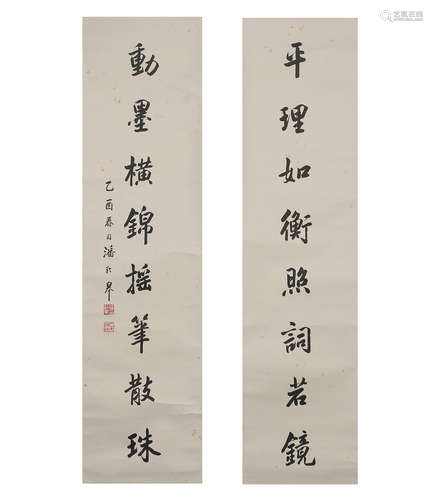 平理如衡照詞若鏡
動墨橫錦搖筆散珠
乙酉春日潘齡皋